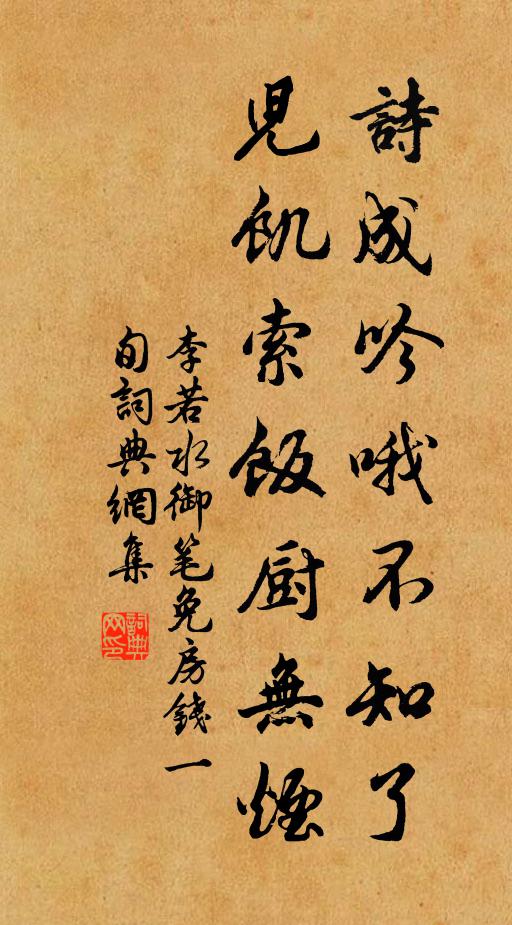 詩成吟哦不知了
兒飢索飯厨無煙
李若水御笔免房錢一
句詞典網集
詞典
网印